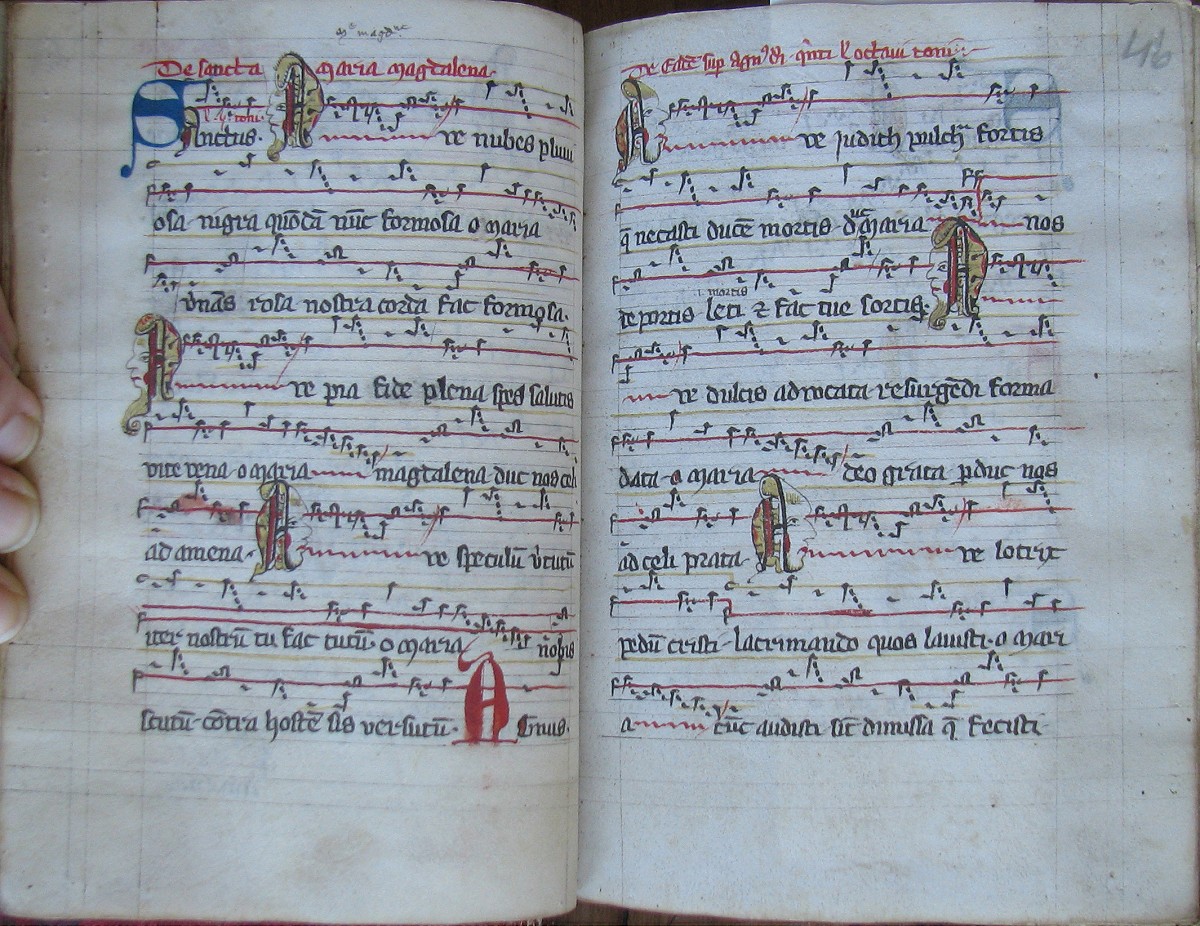 ma magdne
De sancta maria magdalena
Sanctus. Are nubes pluui
osa nigra quōdā nūc formosa o maria
vernās rosa nostra corda fac formosa.
Are pia fide plena spes salutis
vite vena o maria magdalena duc nos celi
ad amena. Are speculū vtutū
iter nostrū tu fac tutū. o maria nobis
scutū cōtra hostē sis versutū. Agnus.
De eadē sup agnꝰ dī qnti l octaui toni
Are judith pulchra fortis
q necasti ducē mortis duc maria nos
i. mortis
de portis leti ⁊ fac tue sortis. A
re dulcis aduocata resurgēdi forma
data o maria deo grata pduc nos
ad celi prata. Are lotrix
pedū cristi lacrimando quos lauisti o mari
a tūc audisti sūt dimissa q fecisti
46